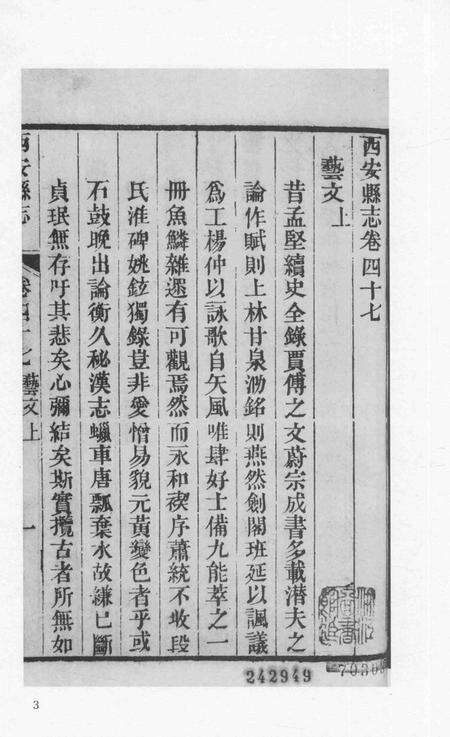 西安縣志卷四十七
藝文上
昔孟堅續史全錄賈傅之文蔚宗成書多載潜夫之
論作賦則上林甘泉泐銘則燕然劍閣班延以諷議
爲工楊仲以詠歌自矢風唯肆好士備九能萃之一
冊魚鱗雜遝有可觀焉然而永和禊序蕭統不收段
氏淮碑姚鉉獨錄豈非愛憎易貌元黃變色者乎或
石鼓晚出論衡久秘漢志蠟車唐瓢棄水故縑已斷
貞珉無存吁其悲矣心彌結矣斯實攬古者所無如
西安縣志
卷四十七 藝文上
一
242949
3